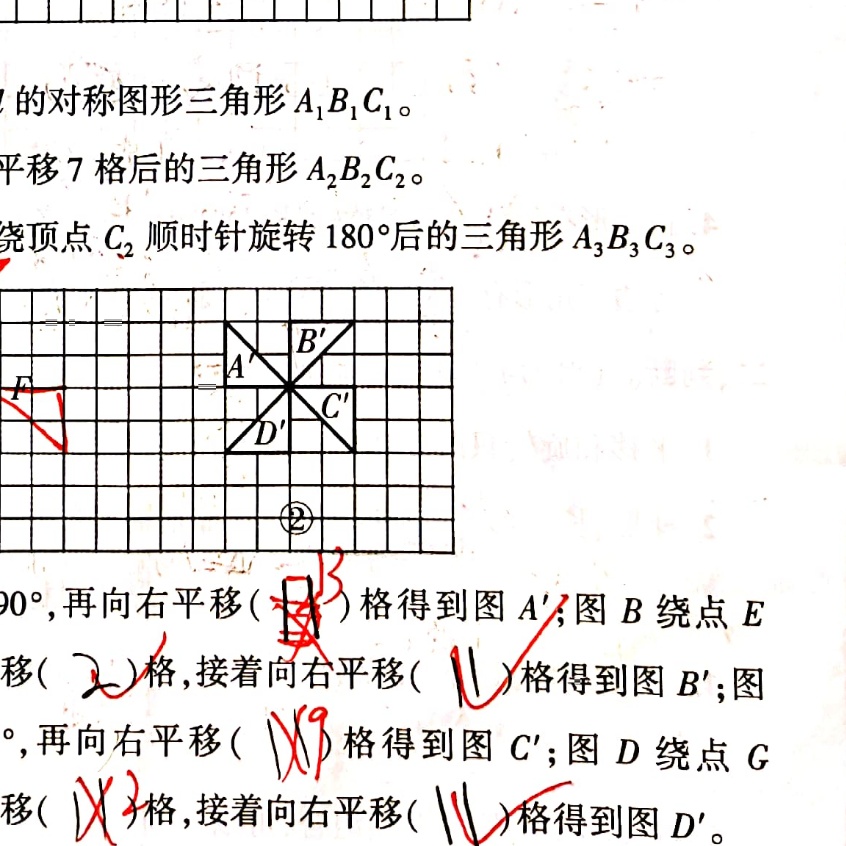 的对称图形三角形 A₁B₁C₁。
平移 7 格后的三角形 A₂B₂C₂。
绕顶点 C₂ 顺时针旋转 180°后的三角形 A₃B₃C₃。
B′
A′
F
C′
D′
②
90°,再向右平移( 13 )格得到图 A′;图 B 绕点 E
移( 2 )格,接着向右平移( 11 )格得到图 B′;图
°,再向右平移( 11 9 )格得到图 C′;图 D 绕点 G
移( 11 2 )格,接着向右平移( 11 )格得到图 D′。